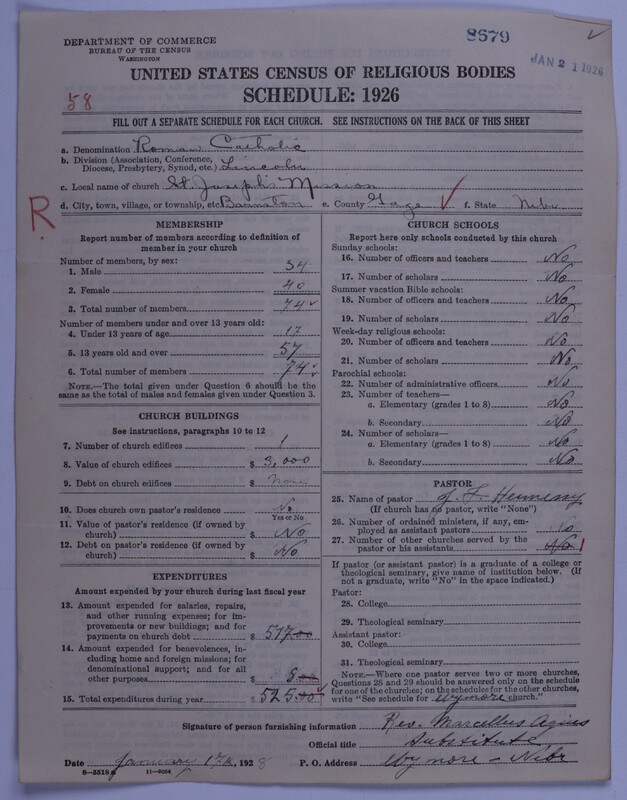 DEPARTMENT OF COMMERCE
BUREAU OF THE CENSUS
WASHINGTON
8679
JAN 21 1926
UNITED STATES CENSUS OF RELIGIOUS BODIES
SCHEDULE: 1926
58
FILL OUT A SEPARATE SCHEDULE FOR EACH CHURCH. SEE INSTRUCTIONS ON THE BACK OF THIS SHEET
a. Denomination Roman Catholic
b. Division (Association, Conference, Diocese, Presbytery, Synod, etc.) Lincoln
c. Local name of church St. Joseph's Mission
d. City, town, village, or township, etc. Barnston e. County Gage f. State Nebr
R.
MEMBERSHIP
Report number of members according to definition of
member in your church
Number of members, by sex:
1. Male 34
2. Female 40
3. Total number of members 74
Number of members under and over 13 years old:
4. Under 13 years of age 17
5. 13 years old and over 57
6. Total number of members 74
NOTE.—The total given under Question 6 should be the
same as the total of males and females given under Question 3.
CHURCH BUILDINGS
See instructions, paragraphs 10 to 12
7. Number of church edifices 1
8. Value of church edifices $ 3,000
9. Debt on church edifices $ none
10. Does church own pastor's residence No
Yes or No
11. Value of pastor's residence (if owned by
church) $ No
12. Debt on pastor's residence (if owned by
church) $ No
EXPENDITURES
Amount expended by your church during last fiscal year
13. Amount expended for salaries, repairs,
and other running expenses; for im-
provements or new buildings; and for
payments on church debt $ 517.00
14. Amount expended for benevolences,
including home and foreign missions; for
denominational support; and for all
other purposes $ 8.00
15. Total expenditures during year $ 525.00
CHURCH SCHOOLS
Report here only schools conducted by this church
Sunday schools:
16. Number of officers and teachers No
17. Number of scholars No
Summer vacation Bible schools:
18. Number of officers and teachers No
19. Number of scholars No
Week-day religious schools:
20. Number of officers and teachers No
21. Number of scholars No
Parochial schools:
22. Number of administrative officers No
23. Number of teachers—
a. Elementary (grades 1 to 8) No
b. Secondary No
24. Number of scholars—
a. Elementary (grades 1 to 8) No
b. Secondary No
PASTOR
25. Name of pastor Hennessy
(If church has no pastor, write "None")
26. Number of ordained ministers, if any, em-
ployed as assistant pastors
27. Number of other churches served by the
pastor or his assistants No 1
If pastor (or assistant pastor) is a graduate of a college or
theological seminary, give name of institution below. (If
not a graduate, write "No" in the space indicated.)
Pastor:
28. College
29. Theological seminary
Assistant pastor:
30. College
31. Theological seminary
NOTE.—Where one pastor serves two or more churches,
Questions 28 and 29 should be answered only on the schedule
for one of the churches; on the schedules for the other churches,
write "See schedule for Wymore church."
Signature of person furnishing information Rev. Marcellus Agius
Official title Substitute
Date January 17th, 1928 P. O. Address Wymore - Nebr
8-5518a 11-9034